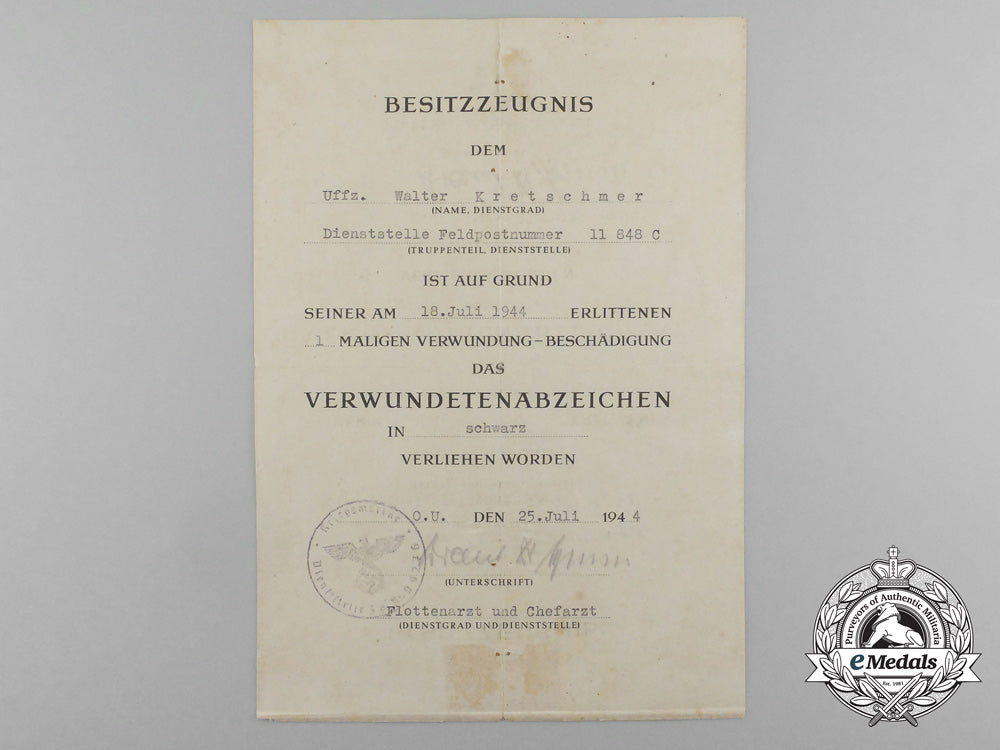 BESITZZEUGNIS
DEM
Uffz. Walter Kretschmer
(NAME, DIENSTGRAD)
Dienststelle Feldpostnummer 11 848 C
(TRUPPENTEIL, DIENSTSTELLE)
IST AUF GRUND
SEINER AM 18.Juli 1944 ERLITTENEN
1 MALIGEN VERWUNDUNG – BESCHÄDIGUNG
DAS
VERWUNDETENABZEICHEN
IN schwarz
VERLIEHEN WORDEN
O.U. DEN 25.Juli 1944
Kriegsmarine
Dienststelle
(UNTERSCHRIFT)
Flottenarzt und Chefarzt
(DIENSTGRAD UND DIENSTSTELLE)
Purveyors of Authentic Militaria
eMedals
Est. 1981